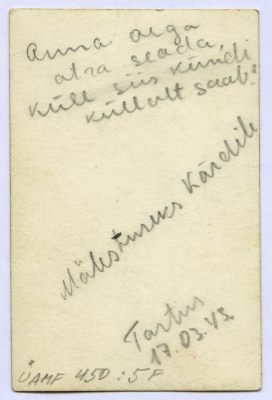 Anna aega
atra seada,
küll siis kündi
küllalt saab!
Mälestuseks Kärdile
Tartus
17.03.43.
ÜAMF 450:5F